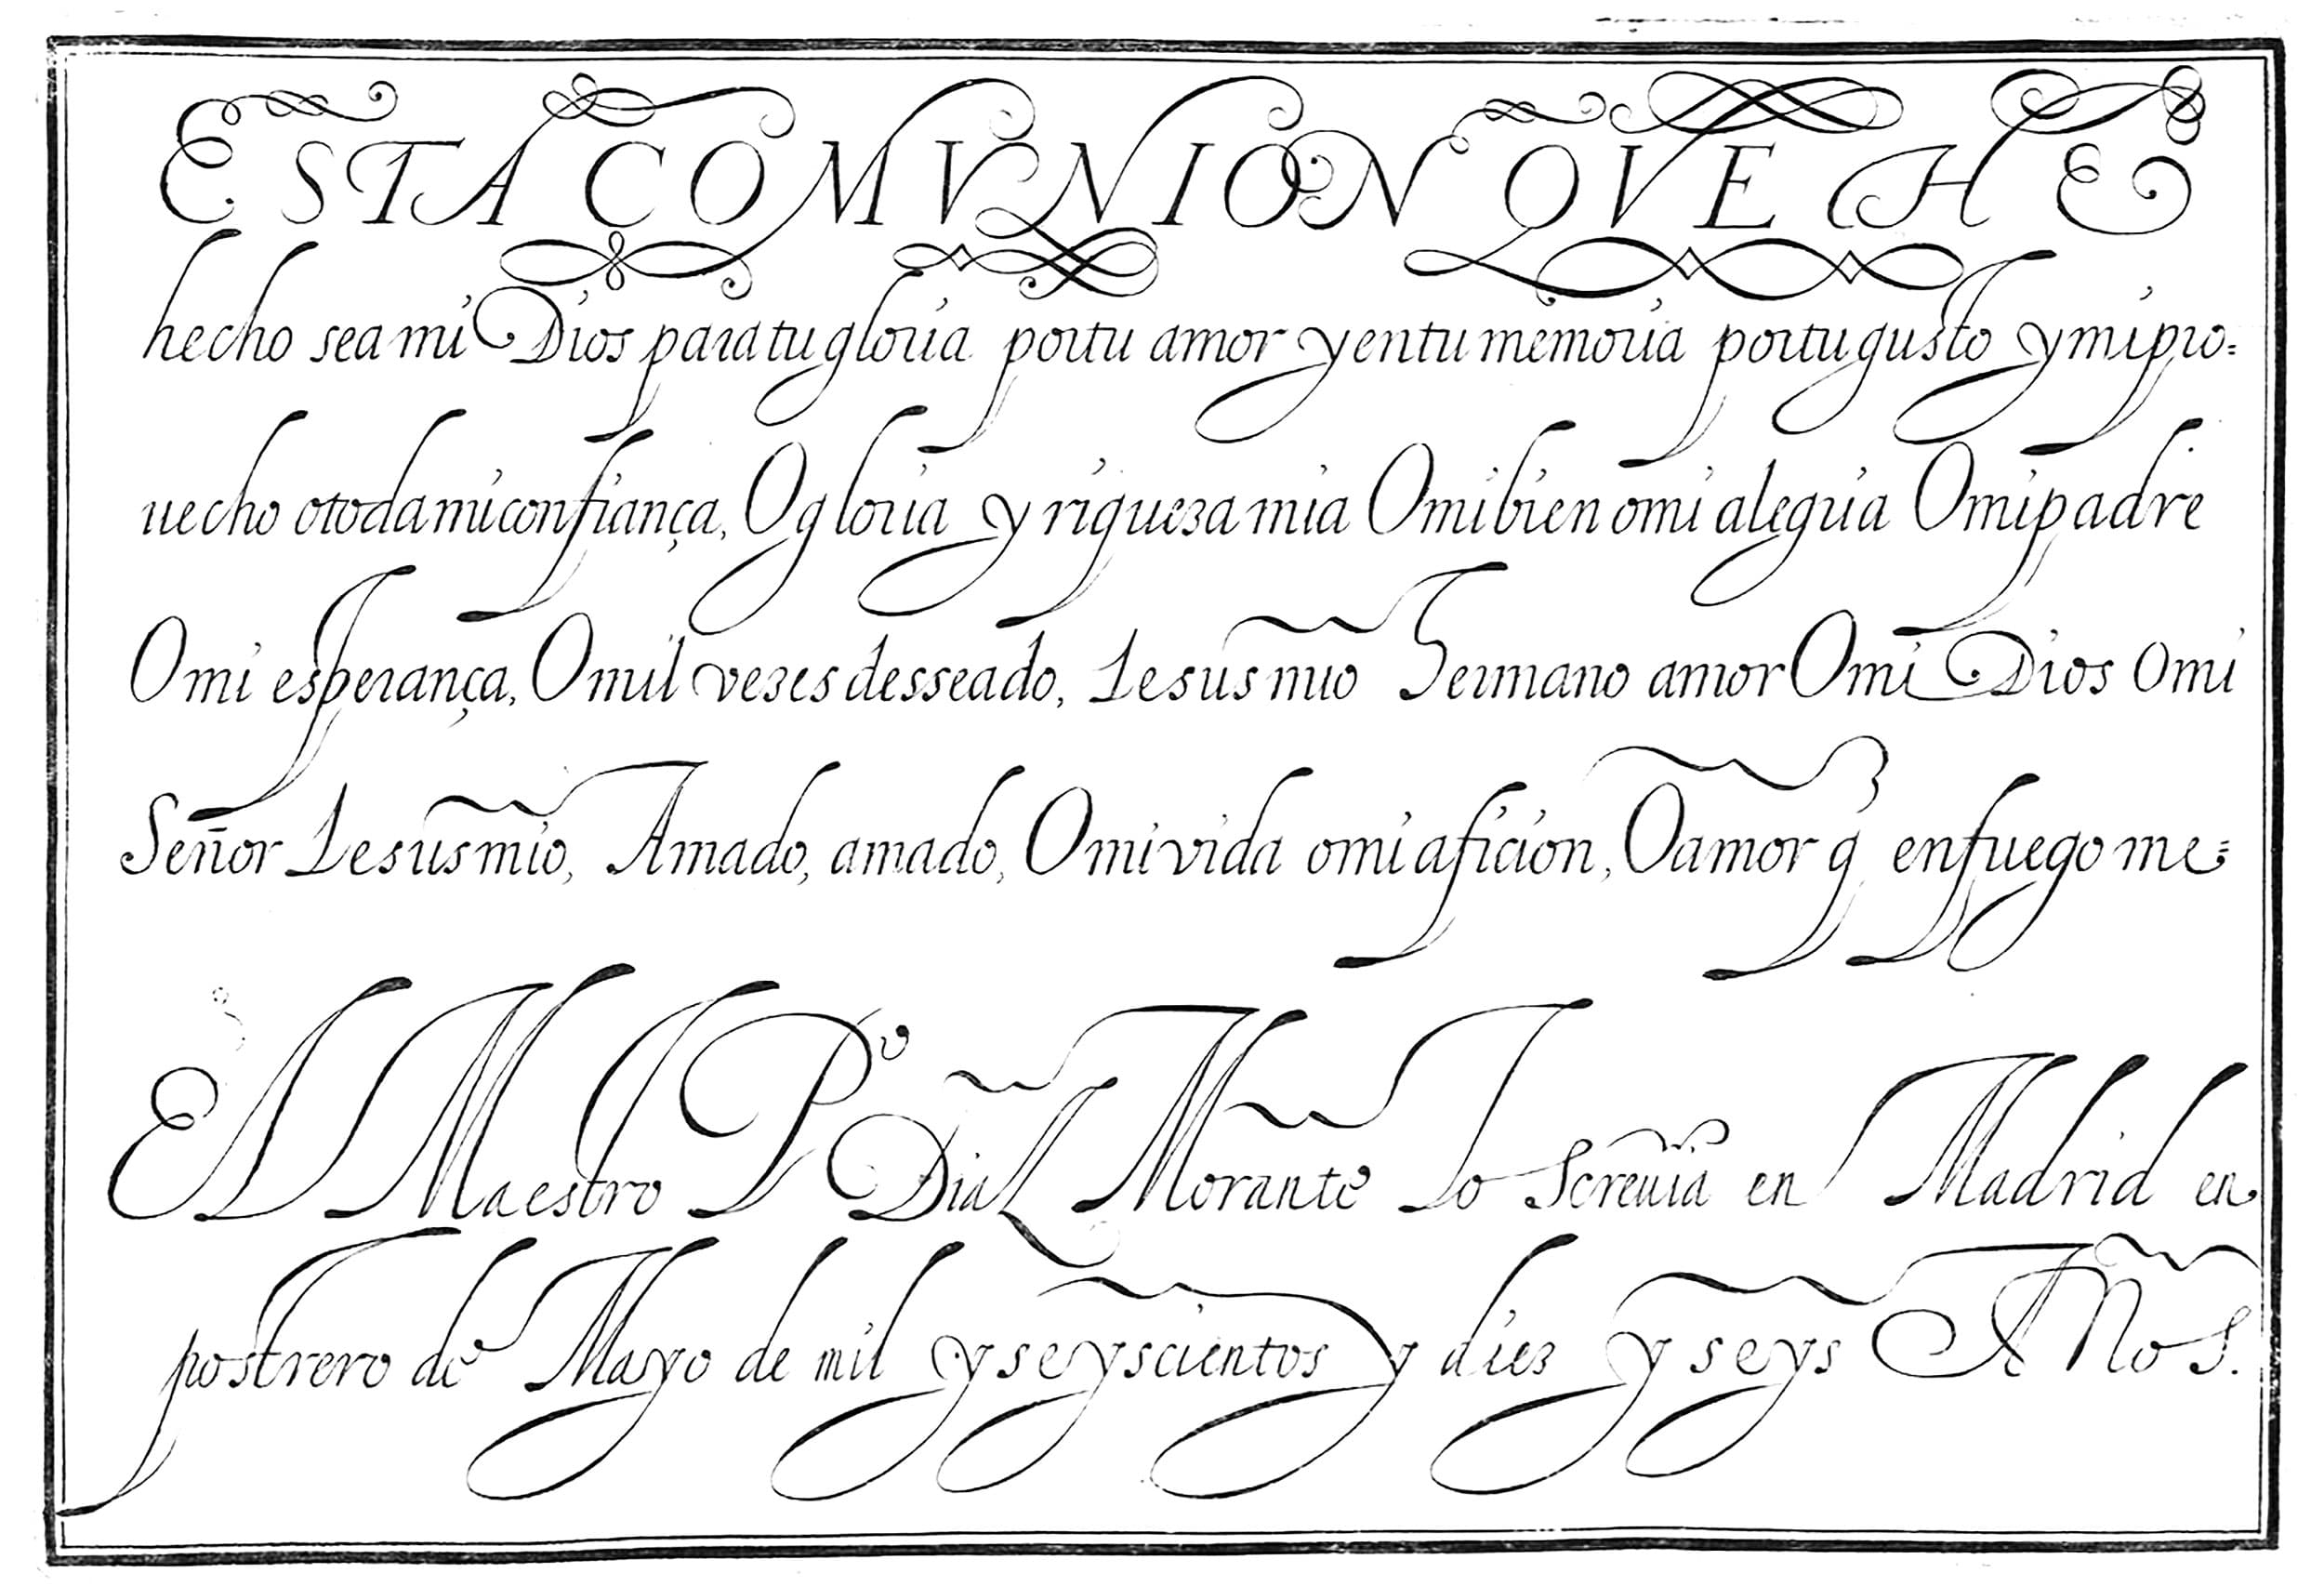 ESTA COMVNION QVE HE
hecho sea mi Dios para tu gloria por tu amor y en tu memoria por tu gusto y mi pro=
uecho o toda mi confiança, O gloria y riqueza mia O mi bien o mi alegria O mi padre
O mi esperança, O mil vezes desseado, Iesus mio Hermano amor O mi Dios O mi
Señor Iesus mio, Amado, amado, O mi vida o mi aficion, O amor q̃ en fuego me=
El Maestro P.º Diaz Morante Lo Screuia en Madrid en
postrero de Mayo de mil y seyscientos y diez y seys Años.